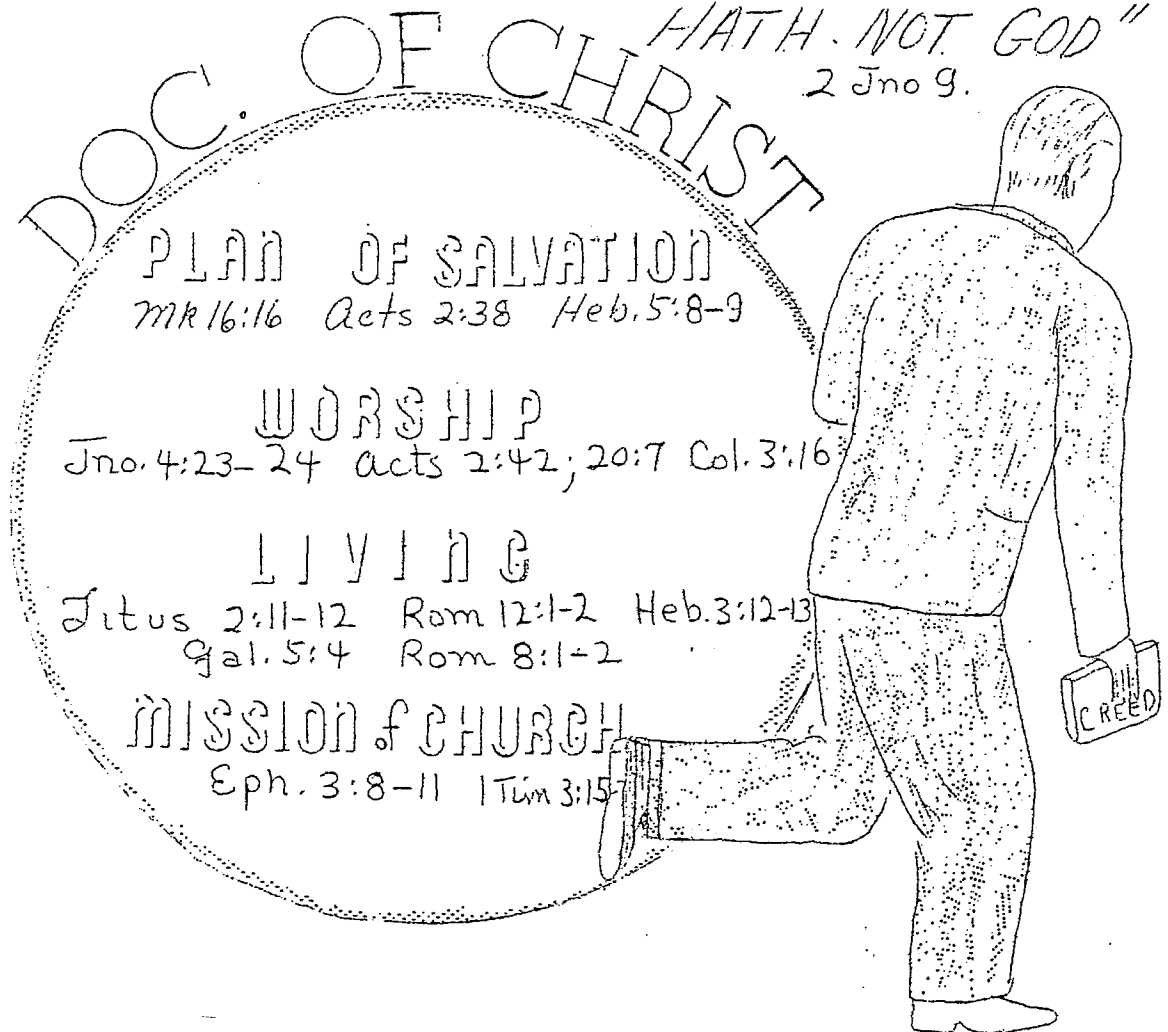 HATH. NOT GOD"
2 Jno 9.
DOC. OF CHRIST
PLAN OF SALVATION
Mk 16:16 Acts 2:38 Heb. 5:8-9
WORSHIP
Jno. 4:23-24 Acts 2:42; 20:7 Col. 3:16
LIVING
Titus 2:11-12 Rom 12:1-2 Heb. 3:12-13
Gal. 5:4 Rom 8:1-2
MISSION of CHURCH
Eph. 3:8-11 1 Tim 3:15
CREED